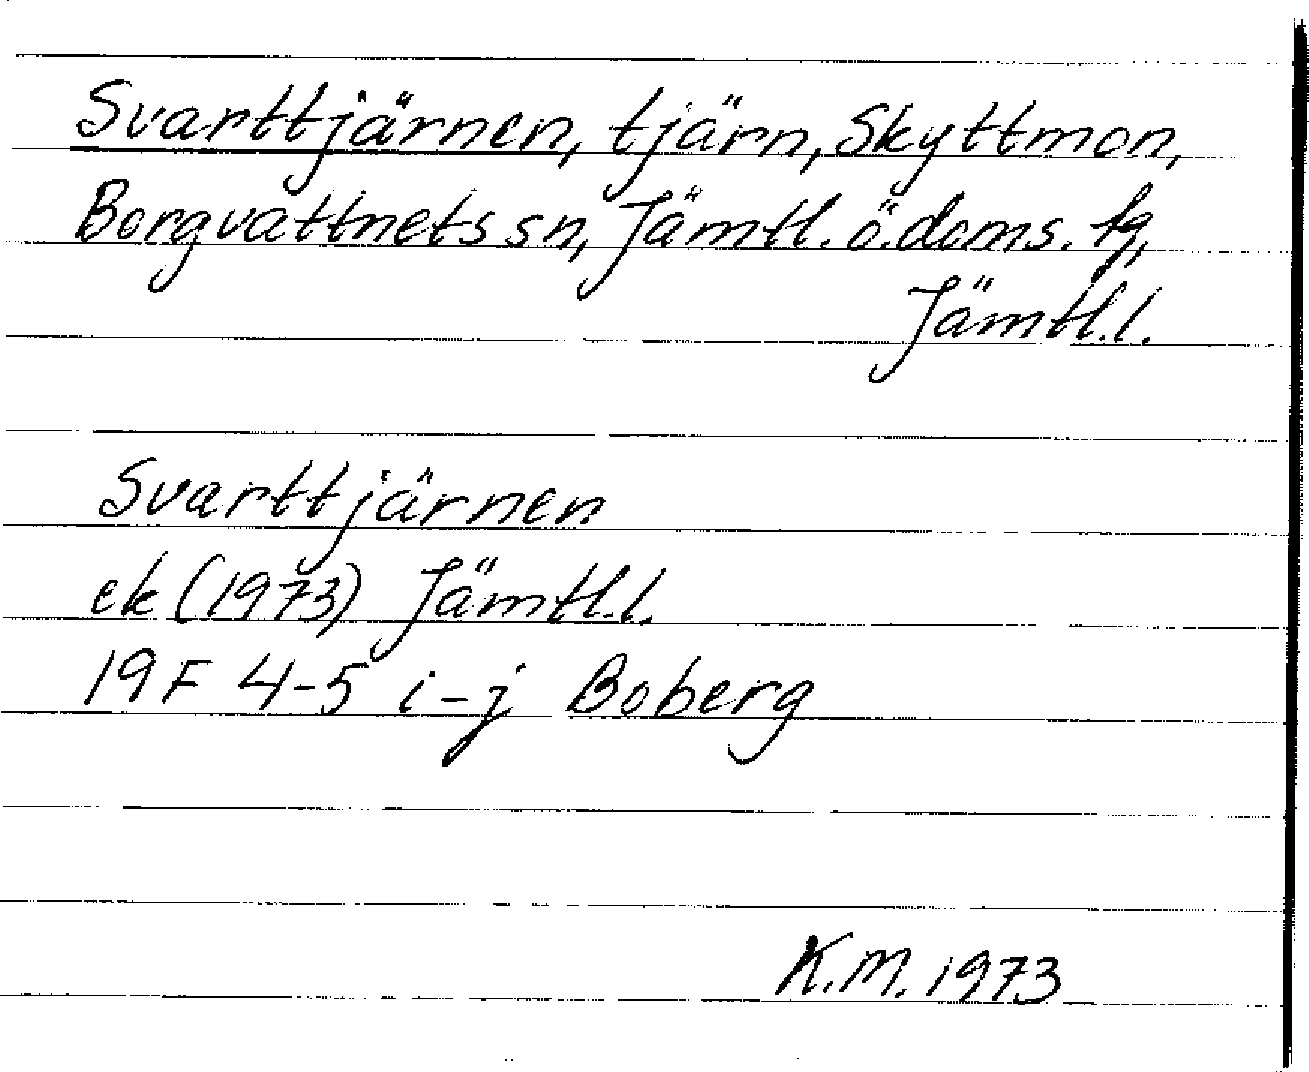 Svarttjärnen, tjärn, Skyttmon,
Borgvattnets sn, Jämtl. ö. doms. fg,
Jämtl.l.
Svarttjärnen
ek (1973) Jämtl.l.
19F 4-5 i-j Boberg
K.M. 1973